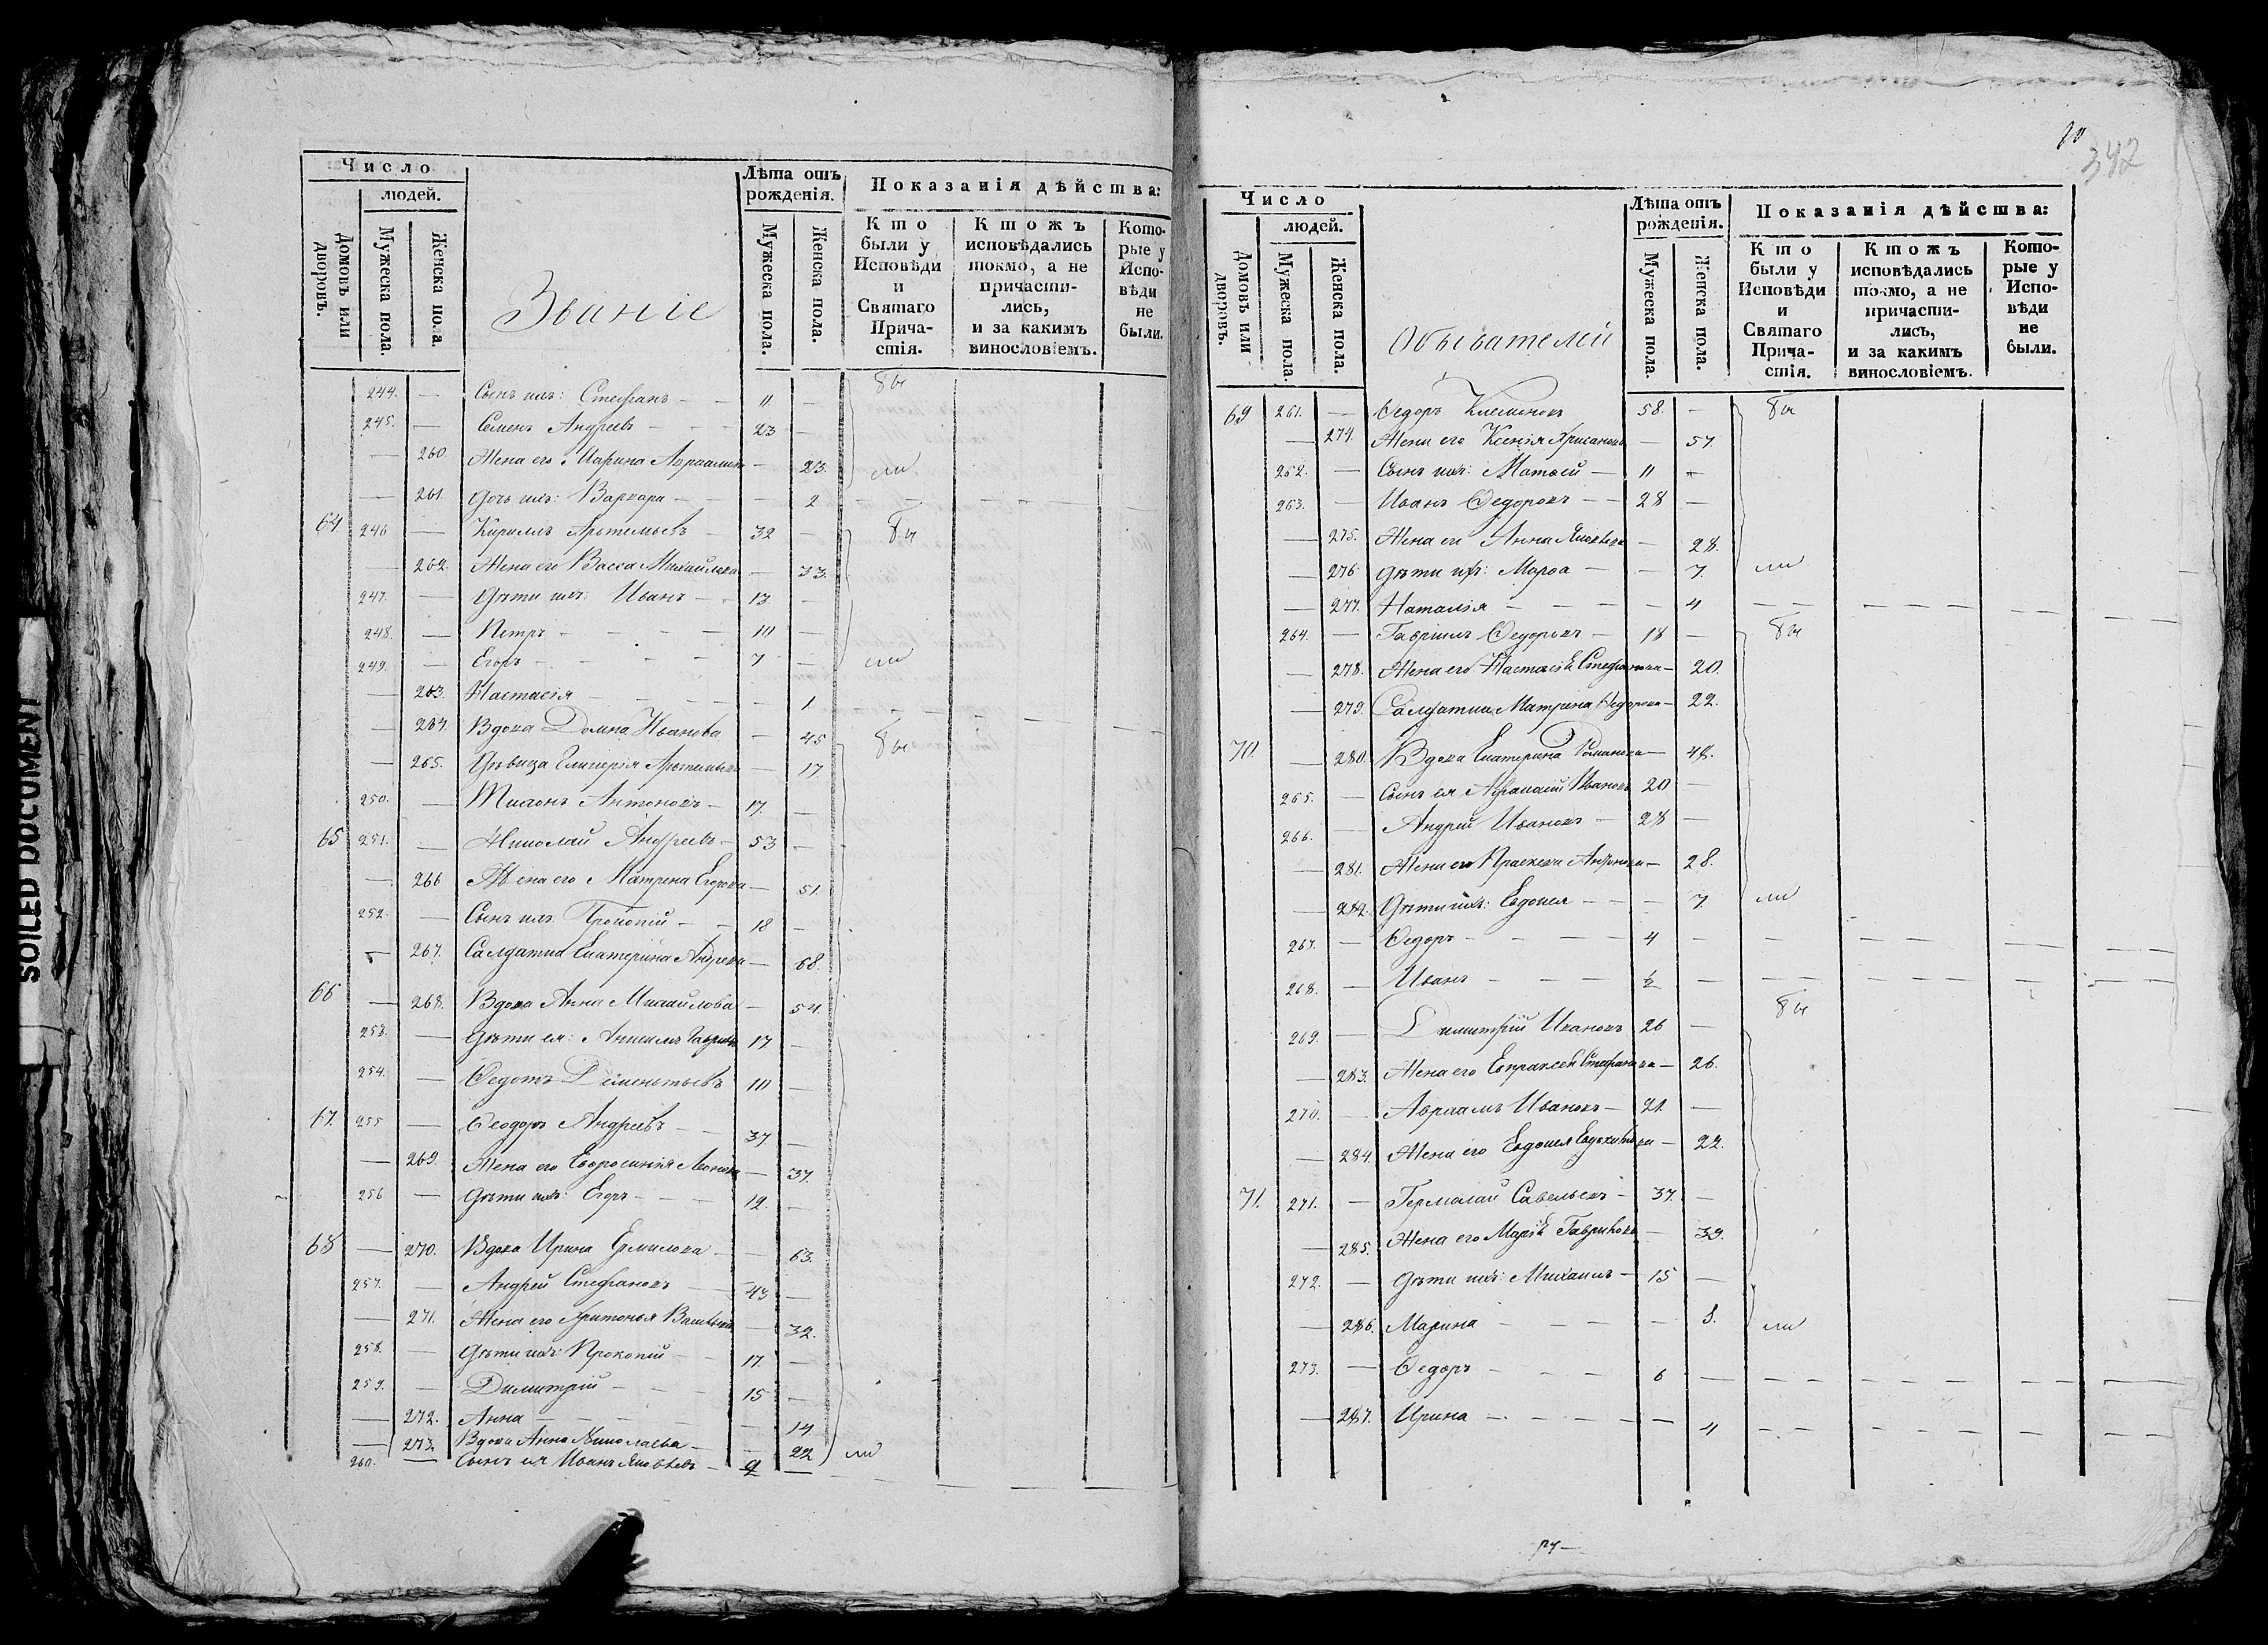 SOILED DOCUMENT
Число
людей.
Домовъ или дворовъ.
Мужеска пола.
Женска пола.
Званіе
Лѣта отъ рожденія.
Мужеска пола.
Женска пола.
Показанія дѣйства:
Кто были у Исповѣди и Святаго Причастія.
Ктожъ исповѣдались токмо, а не причастились, и за какимъ винословіемъ.
Которые у Исповѣди не были.
244. — Сынъ ихъ: Стефанъ — — 11 — бы
245. — Семенъ Андреевъ — — 23 —
— 260. Жена его Марина — 23. ли
— 261. Дочь ихъ: Варвара — — — 2 — —
64 246 — Кириллъ Артемьевъ — 32 — бы
— 262. Жена его Васса Михайлова — 33.
247. — Дѣти ихъ: Иванъ — 13 —
248. — Петръ — — — 10 —
249. — Егоръ — — — 7 — ли
— 263. Настасія — — — — 1
— 264. Вдова Домна Иванова — 45 бы
— 265. Дѣвица Гликерія Артемьева — 17
250. — Тихонъ Антоновъ — 17. —
65 251. — Николай Андреевъ — 53 —
— 266 Жена его Матрена Егорова — 51.
252. — Сынъ ихъ: Прокопій — — 18 —
— 267. Салдатка Екатерина Андреева — 68.
66 — 268. Вдова Анна Михайлова — 54.
253. — Дѣти ея: 17 —
254. — Федотъ Дементьевъ 10 —
67. 255 — Феодоръ Андреевъ — — 37 —
— 269. Жена его Евфросинія — 37.
256 — Дѣти ихъ: Егоръ — — — 12. —
68 — 270. Вдова Ирина Ермилова — — 63.
257. — Андрей Стефановъ — 43 —
— 271. Жена его Харитонья — 32.
258. — Дѣти ихъ: Прокопій — — 17. —
259. — Димитрій — — — 15 —
— 272. Анна — — — — 14
— 273. Вдова Анна Николаева — — 22 ли
260. — Сынъ ея Иванъ Яковлевъ — 2 —
20
342
Число
людей.
Домовъ или дворовъ.
Мужеска пола.
Женска пола.
Обывателей
Лѣта отъ рожденія.
Мужеска пола.
Женска пола.
Показанія дѣйства:
Кто были у Исповѣди и Святаго Причастія.
Ктожъ исповѣдались токмо, а не причастились, и за какимъ винословіемъ.
Которые у Исповѣди не были.
69 261. — Федоръ 58. — бы
— 274. Жена его Ксенія — 57.
262. — Сынъ ихъ: Матвей — 11 —
263. — Иванъ Федоровъ — — 28 —
— 275. Жена его Анна Яковлева — 28.
— 276 Дѣти ихъ: Марѳа — — 7. ли
— 277. Наталія — — — — 4 — —
264. — Гавріилъ Федоровъ — 18 — бы
— 278. Жена его Настасія Стефанова — 20.
— 279. Салдатка Матрена Федорова — 22.
70. — 280. Вдова Екатерина Романова — 48.
265. — Сынъ ея Афанасій Ивановъ 20 —
266. — Андрей Ивановъ — 28 —
— 281. Жена его Прасковья — 28.
— 282. Дѣти ихъ: Евдокея — — — 7 ли
267. — Федоръ — — — — 4 — —
268. — Иванъ — — — ½ — — бы
269. — Димитрій Ивановъ 26 —
— 283. Жена его Евпраксея Стефанова — 26.
270. — Авраамъ Ивановъ — 21. —
— 284. Жена его Евдокея — 22.
71. 271. — Савельевъ — 37. —
— 285. Жена его Марія Гаврилова — 39.
272. — Дѣти ихъ: Михаилъ — 15 —
— 286. Марина — — — — 8. ли
273. — Федоръ — — — 6 — —
— 287. Ирина — — — — — 4 — —